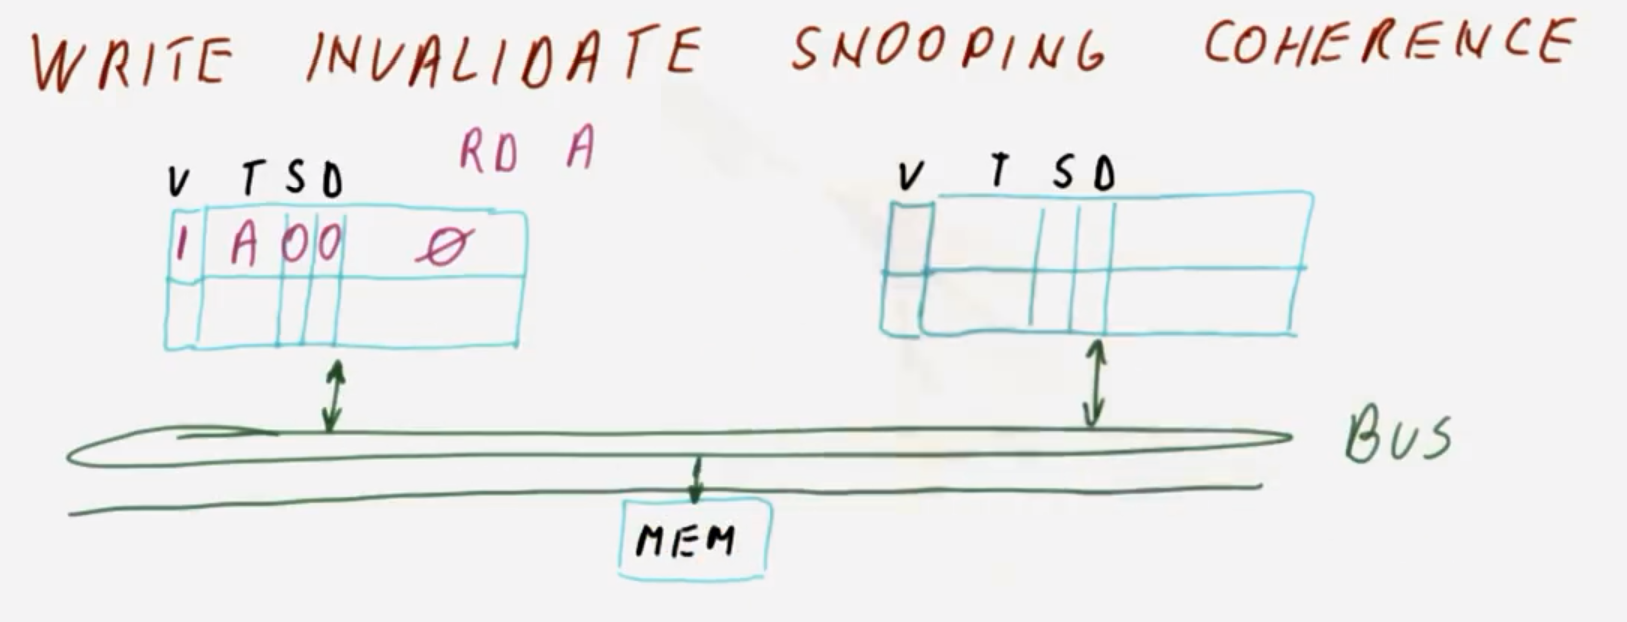 WRITE INVALIDATE SNOOPING COHERENCE
RD A
V T S D
V T S D
1 A 0 0 Ø
BUS
MEM